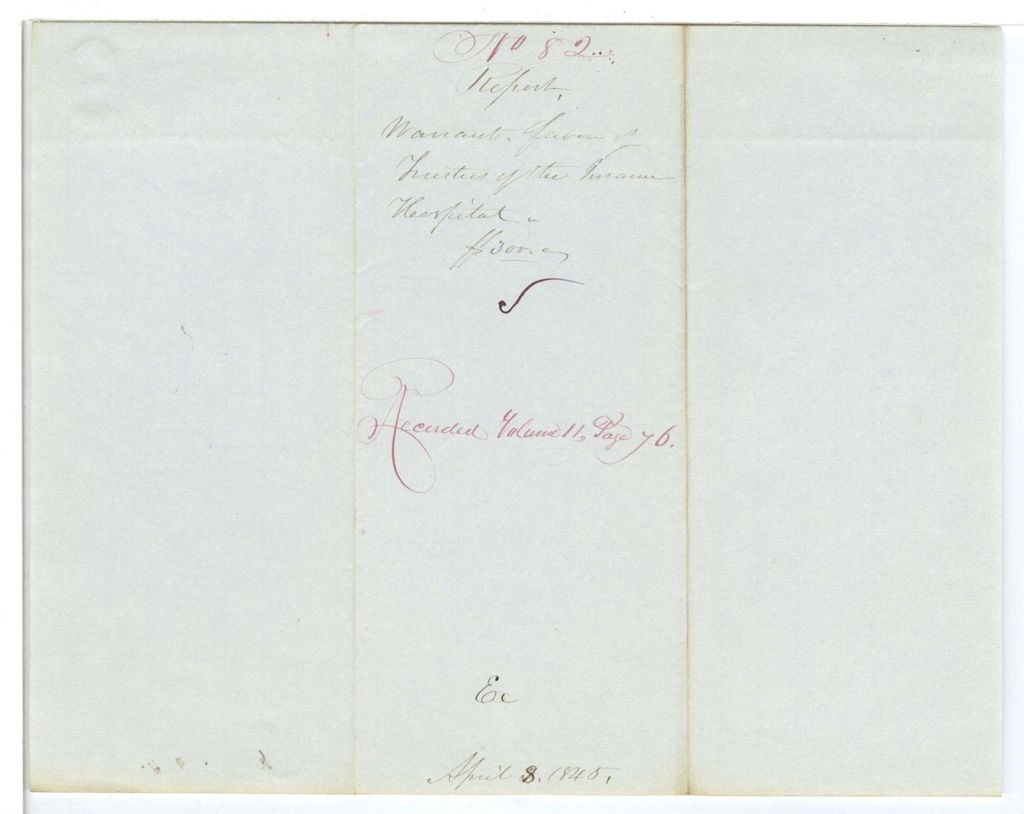 No 82
Report,
Warrant. favor of
Trustees of the Insane
Hospital.
$300.
Recorded Volume 11, Page 76.
Ex
April 8. 1845.